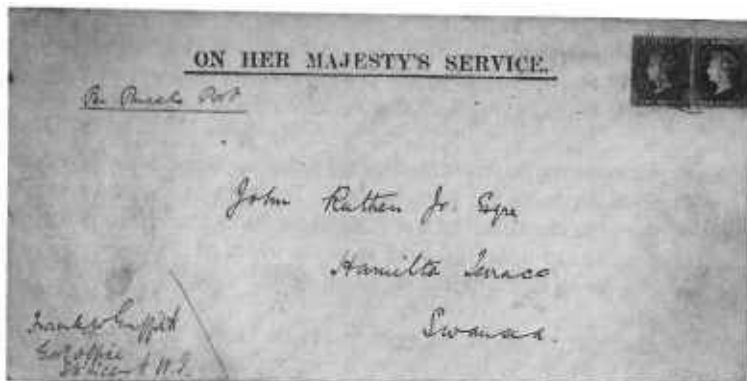 ON HER MAJESTY'S SERVICE.
Per Parcels Post
John Ruthen Jr. Esqre
Hamilton Terrace
Swansea.
Griffith
office
St Vincent W.I.